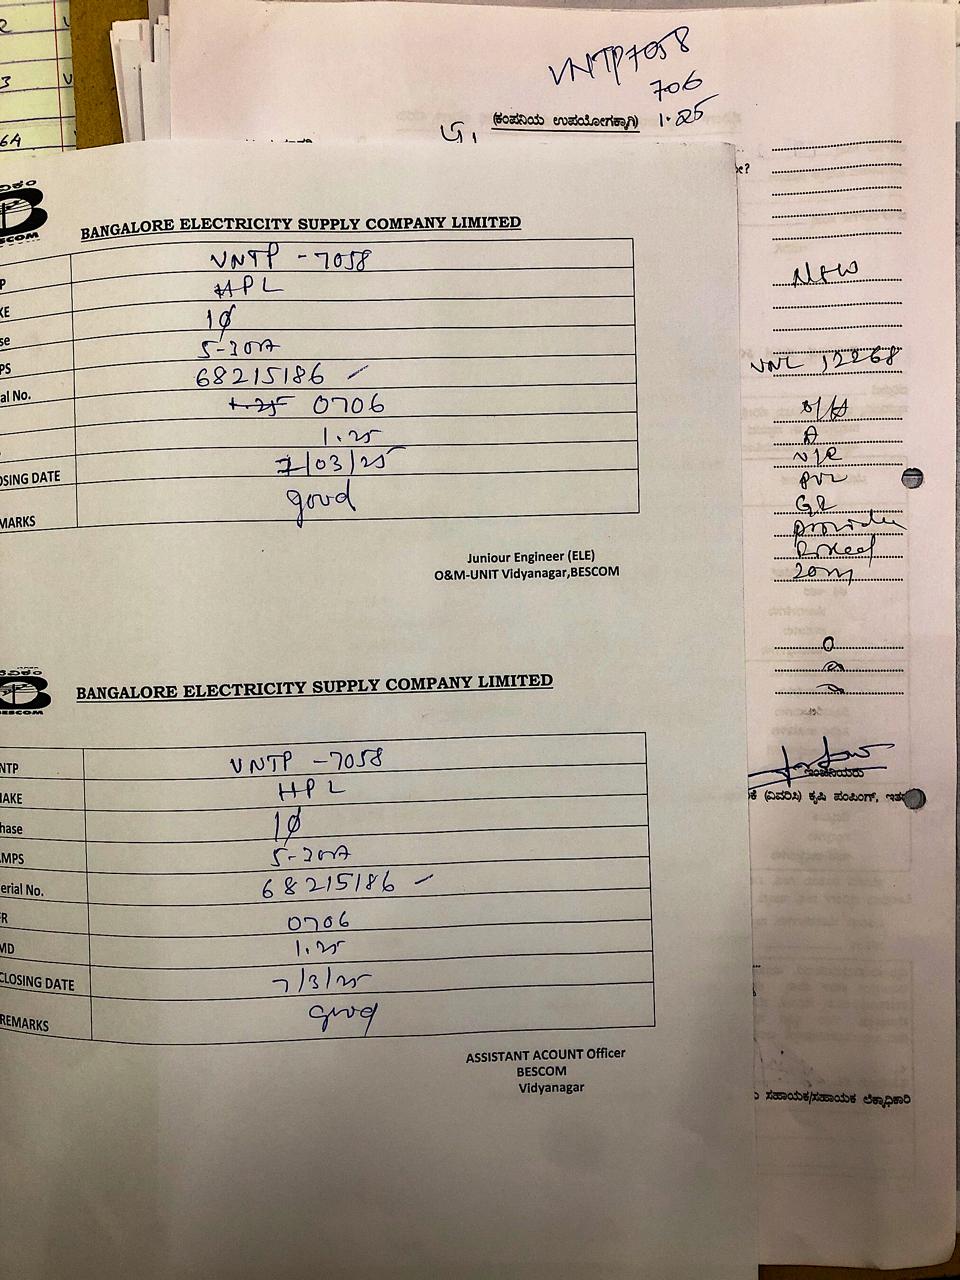 VNTP7058
706
1.25
(ಕಂಪನಿಯ ಉಪಯೋಗಕ್ಕಾಗಿ)
64
BESCOM
BANGALORE ELECTRICITY SUPPLY COMPANY LIMITED
P VNTP - 7058
KE HPL
se 1φ
PS 5-30A
al No. 68215186 ✓
1.25 0706
1.25
OSING DATE 7/03/25
MARKS good
Juniour Engineer (ELE)
O&M-UNIT Vidyanagar,BESCOM
BESCOM
BANGALORE ELECTRICITY SUPPLY COMPANY LIMITED
NTP VNTP - 7058
MAKE HPL
hase 1φ
AMPS 5-30A
erial No. 68215186 ✓
FR 0706
MD 1.25
CLOSING DATE 7/3/25
REMARKS good
ASSISTANT ACOUNT Officer
BESCOM
Vidyanagar
New
VNL 12268
A
GR
20m
0
ಇಂಜಿನಿಯರು
(ವಿವರಿಸಿ) ಕೃಷಿ ಪಂಪಿಂಗ್, ಇತ
ಸಹಾಯಕ/ಸಹಾಯಕ ಲೆಕ್ಕಾಧಿಕಾರಿ